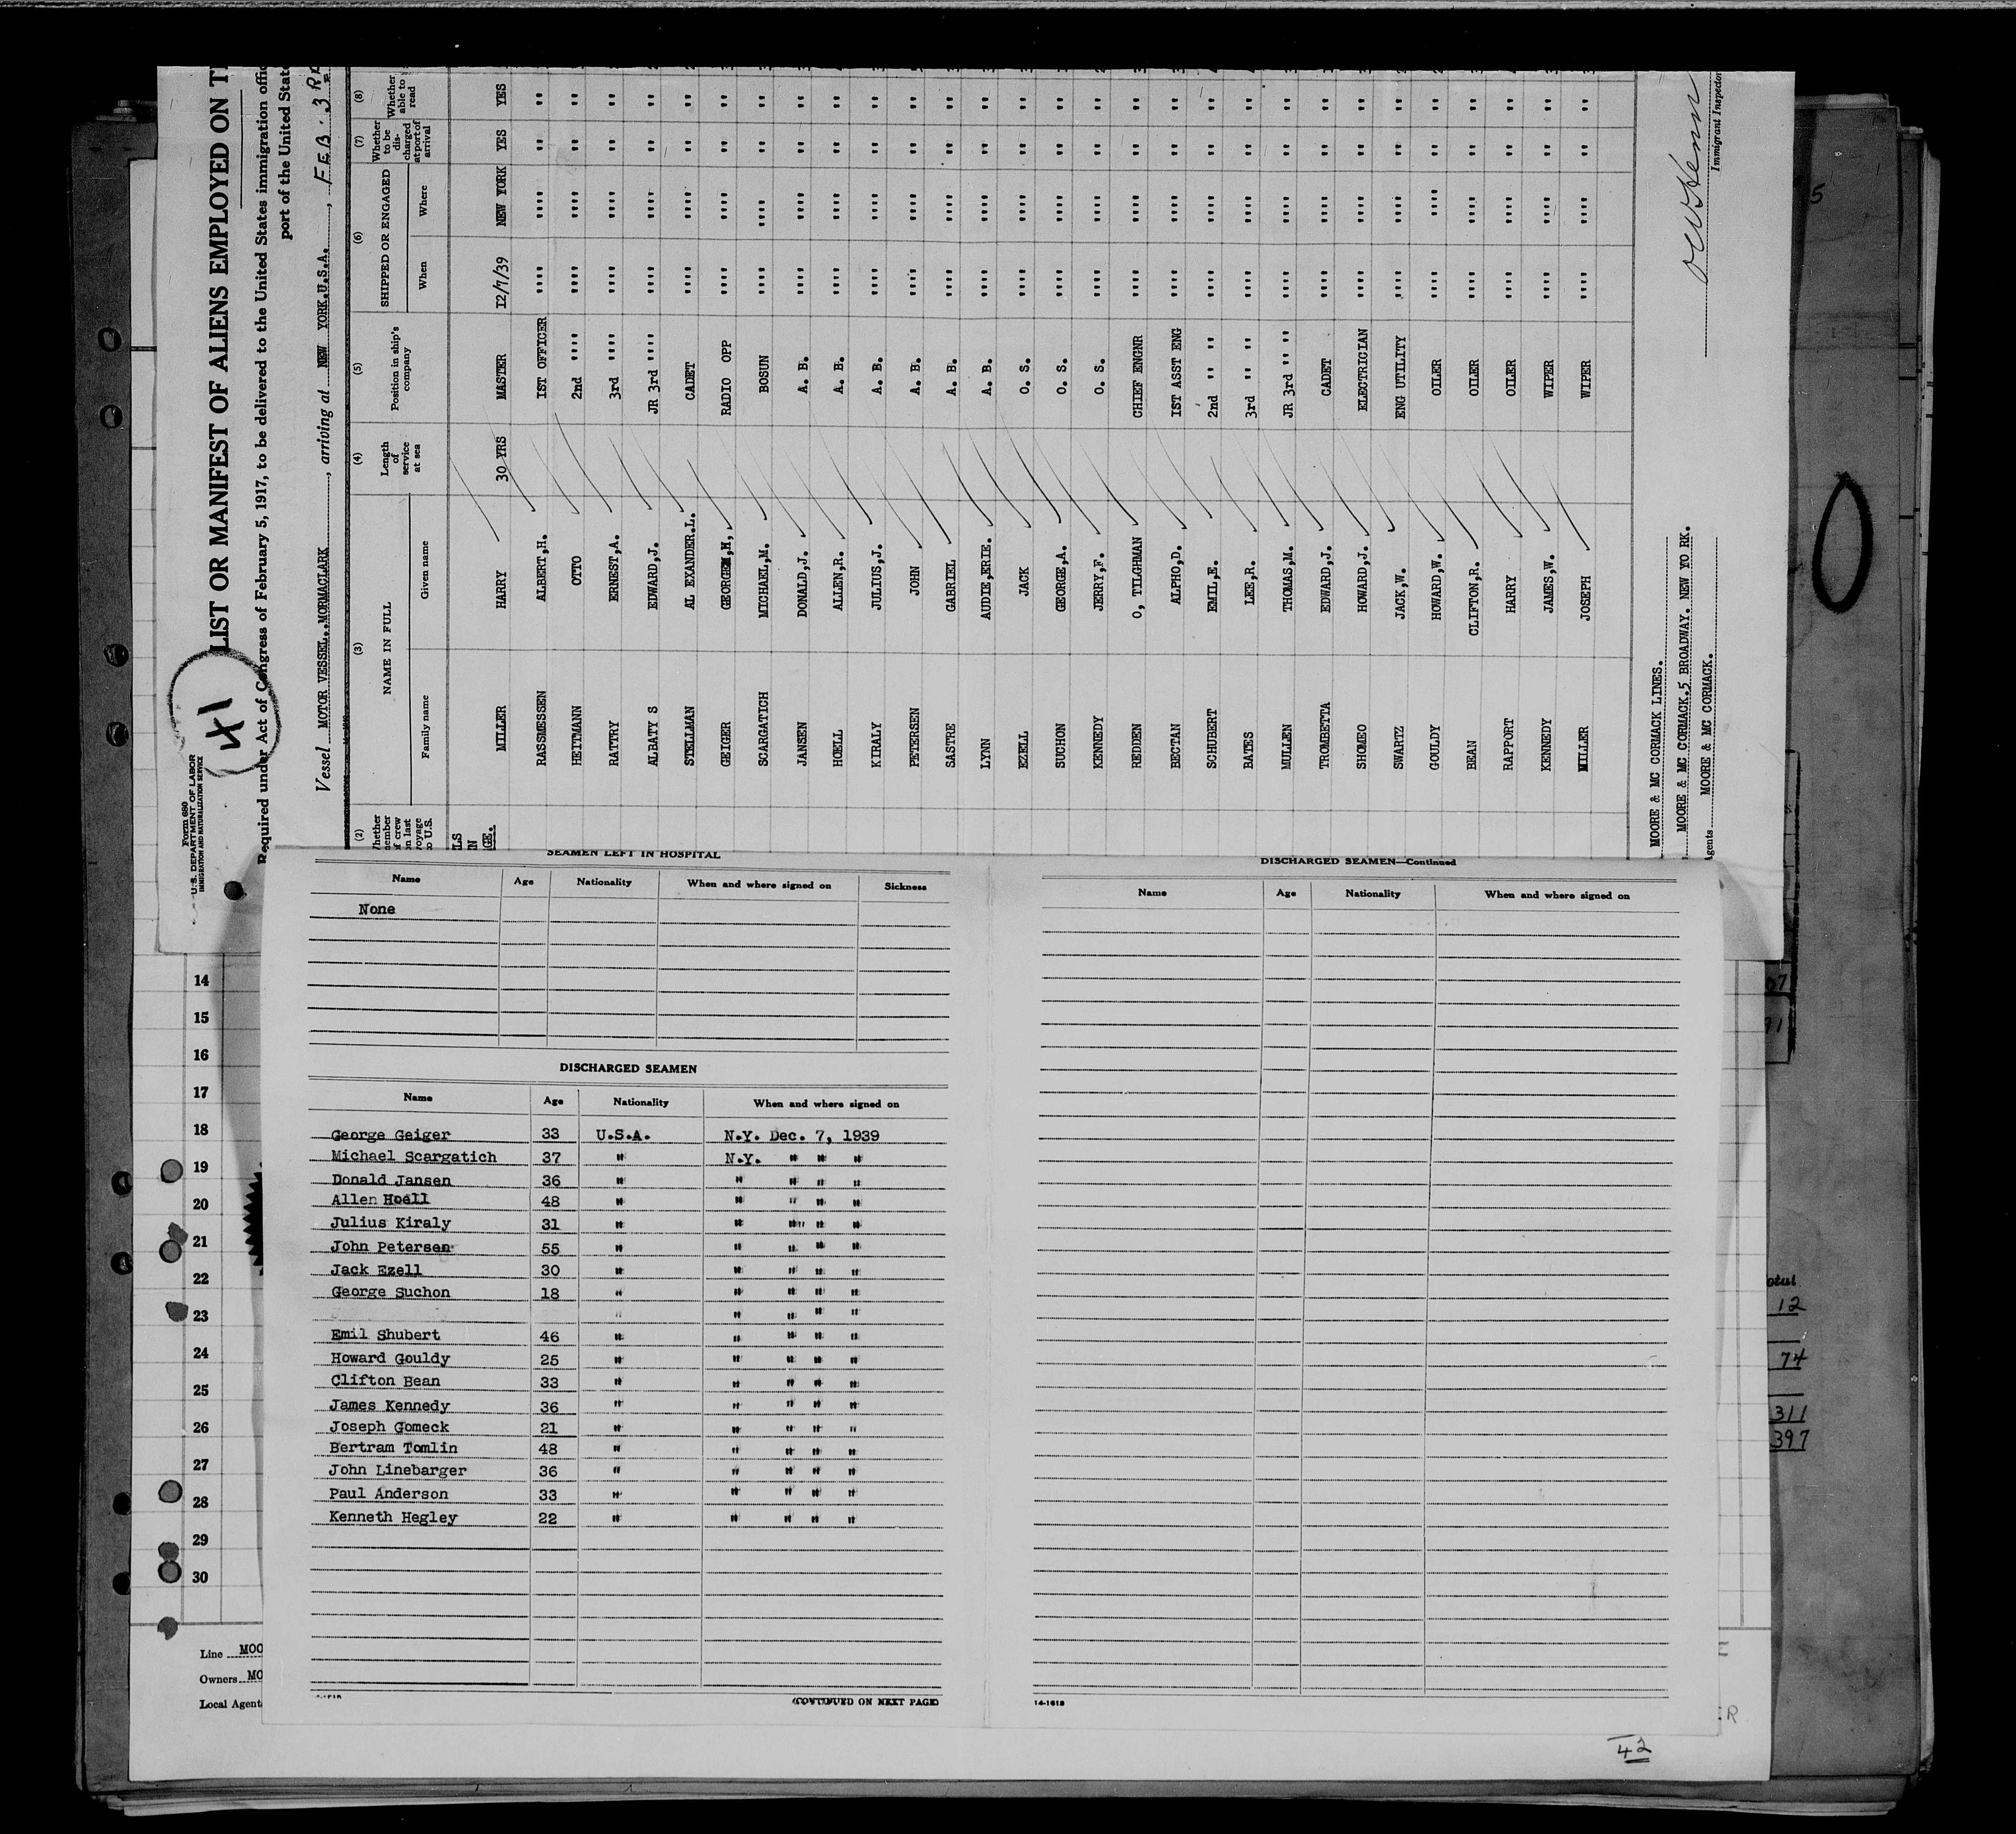 Form 680
U. S. DEPARTMENT OF LABOR
IMMIGRATION AND NATURALIZATION SERVICE
41
LIST OR MANIFEST OF ALIENS EMPLOYED ON
Required under Act of Congress of February 5, 1917, to be delivered to the United States immigration
port of the United
Vessel MOTOR VESSEL..MORMACLARK, arriving at NEW YORK.U.S.A., FEB. 3
(2) (3) (4) (5) (6) (7) (8)
NAME IN FULL Length of service at sea Position in ship's company SHIPPED OR ENGAGED Whether to be discharged at port of arrival Whether able to read
Family name Given name When Where
MILLER HARRY 30 YRS MASTER 12/7/39 NEW YORK YES YES
RASSMESSEN ALBERT,H. IST OFFICER """" """" "" ""
HEITMANN OTTO 2nd """" """" """" "" ""
RATTRY ERNEST,A. 3rd """" """" """" "" ""
ALBATY S EDWARD,J. JR 3rd """" """" """" "" ""
STELLMAN AL EXANDER.L. CADET """" """" "" ""
GEIGER GEORGE,H, RADIO OPP """" """" "" ""
SCARGATICH MICHAEL,M. BOSUN """" """" "" ""
JANSEN DONALD,J. A. B. """" """" "" ""
HOELL ALLEN,R. A. B. """" """" "" ""
KIRALY JULIUS,J. A. B. """" """" "" ""
PETERSEN JOHN A. B. """" """" "" ""
SASTRE GABRIEL A. B. """" """" "" ""
LYNN AUDIE,ERIE. A. B. """" """" "" ""
EZELL JACK O. S. """" """" "" ""
SUCHON GEORGE,A. O. S. """" """" "" ""
KENNEDY JERRY,F. O. S. """" """" "" ""
REDDEN O, TILGHMAN CHIEF ENGNR """" """" "" ""
BECTAN ALPHO,D. IST ASST ENG """" """" "" ""
SCHUBERT EMIL,E. 2nd "" "" """" """" "" ""
BATES LEE,R. 3rd "" "" """" """" "" ""
MULLEN THOMAS,M. JR 3rd "" "" """" """" "" ""
TROMBETTA EDWARD,J. CADET """" """" "" ""
SHOMEO HOWARD,J. ELECTRICIAN """" """" "" ""
SWARTZ JACK,W. ENG UTILITY """" """" "" ""
GOULDY HOWARD,W. OILER """" """" "" ""
BEAN CLIFTON,R. OILER """" """" "" ""
RAPPORT HARRY OILER """" """" "" ""
KENNEDY JAMES,W. WIPER """" """" "" ""
MILLER JOSEPH WIPER """" """" "" ""
MOORE & MC CORMACK LINES.
MOORE & MC CORMACK.5 BROADWAY. NEW YO RK.
Agents MOORE & MC CORMACK.
Immigrant Inspector
SEAMEN LEFT IN HOSPITAL
Name Age Nationality When and where signed on Sickness
None
DISCHARGED SEAMEN
Name Age Nationality When and where signed on
George Geiger 33 U.S.A. N.Y. Dec. 7, 1939
Michael Scargatich 37 " N.Y. " " "
Donald Jansen 36 " " " " "
Allen Hoell 48 " " " " "
Julius Kiraly 31 " " "" " "
John Petersen 55 " " " " "
Jack Ezell 30 " " " " "
George Suchon 18 " " " " "
" " " " "
Emil Shubert 46 " " " " "
Howard Gouldy 25 " " " " "
Clifton Bean 33 " " " " "
James Kennedy 36 " " " " "
Joseph Gomeck 21 " " " " "
Bertram Tomlin 48 " " " " "
John Linebarger 36 " " " " "
Paul Anderson 33 " " " " "
Kenneth Hegley 22 " " " " "
(CONTINUED ON NEXT PAGE)
DISCHARGED SEAMEN—Continued
Name Age Nationality When and where signed on
14-1618
14
15
16
17
18
19
20
21
22
23
24
25
26
27
28
29
30
Line MOO
Owners MO
Local Agent
5
12
74
311
397
42